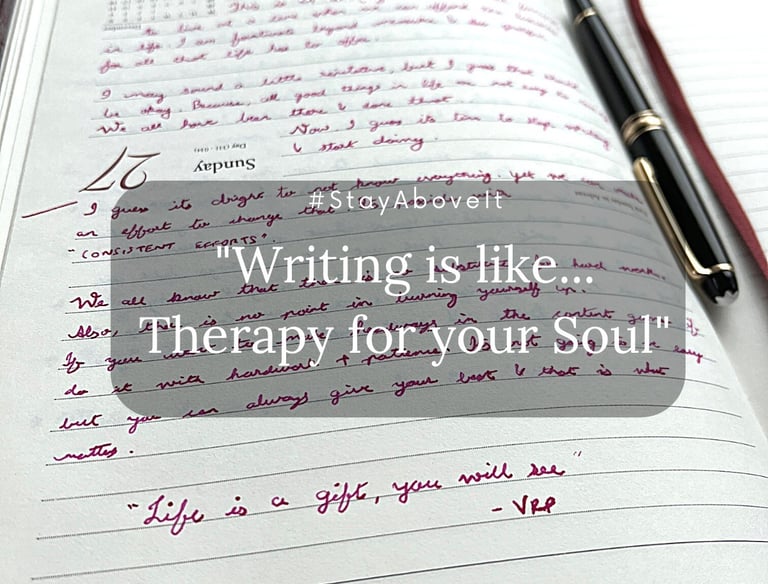 This is
to live at a time when we can afford the
in life. I am fortunate beyond measure & I'm grateful
for all that life has to offer.
I may sound a little repetitive, but I guess that should
be okay. Because, all good things in life are not easy to
We all have been there & done that.
Now I guess its time to stop
& start doing.
27
Sunday
I guess its alright to not know everything. Yet we can make
an effort to change that.
"CONSISTENT EFFORTS".
#StayAboveIt
"Writing is like...
Therapy for your Soul"
We all know that there is no substitute for hard work.
Also, there is no point in burning yourself up.
If you want to in the content
do it with hardwork + patience. Its not going to be easy
but you can always give your best & that is what
matters.
"Life is a gift, you will see"
- VRP